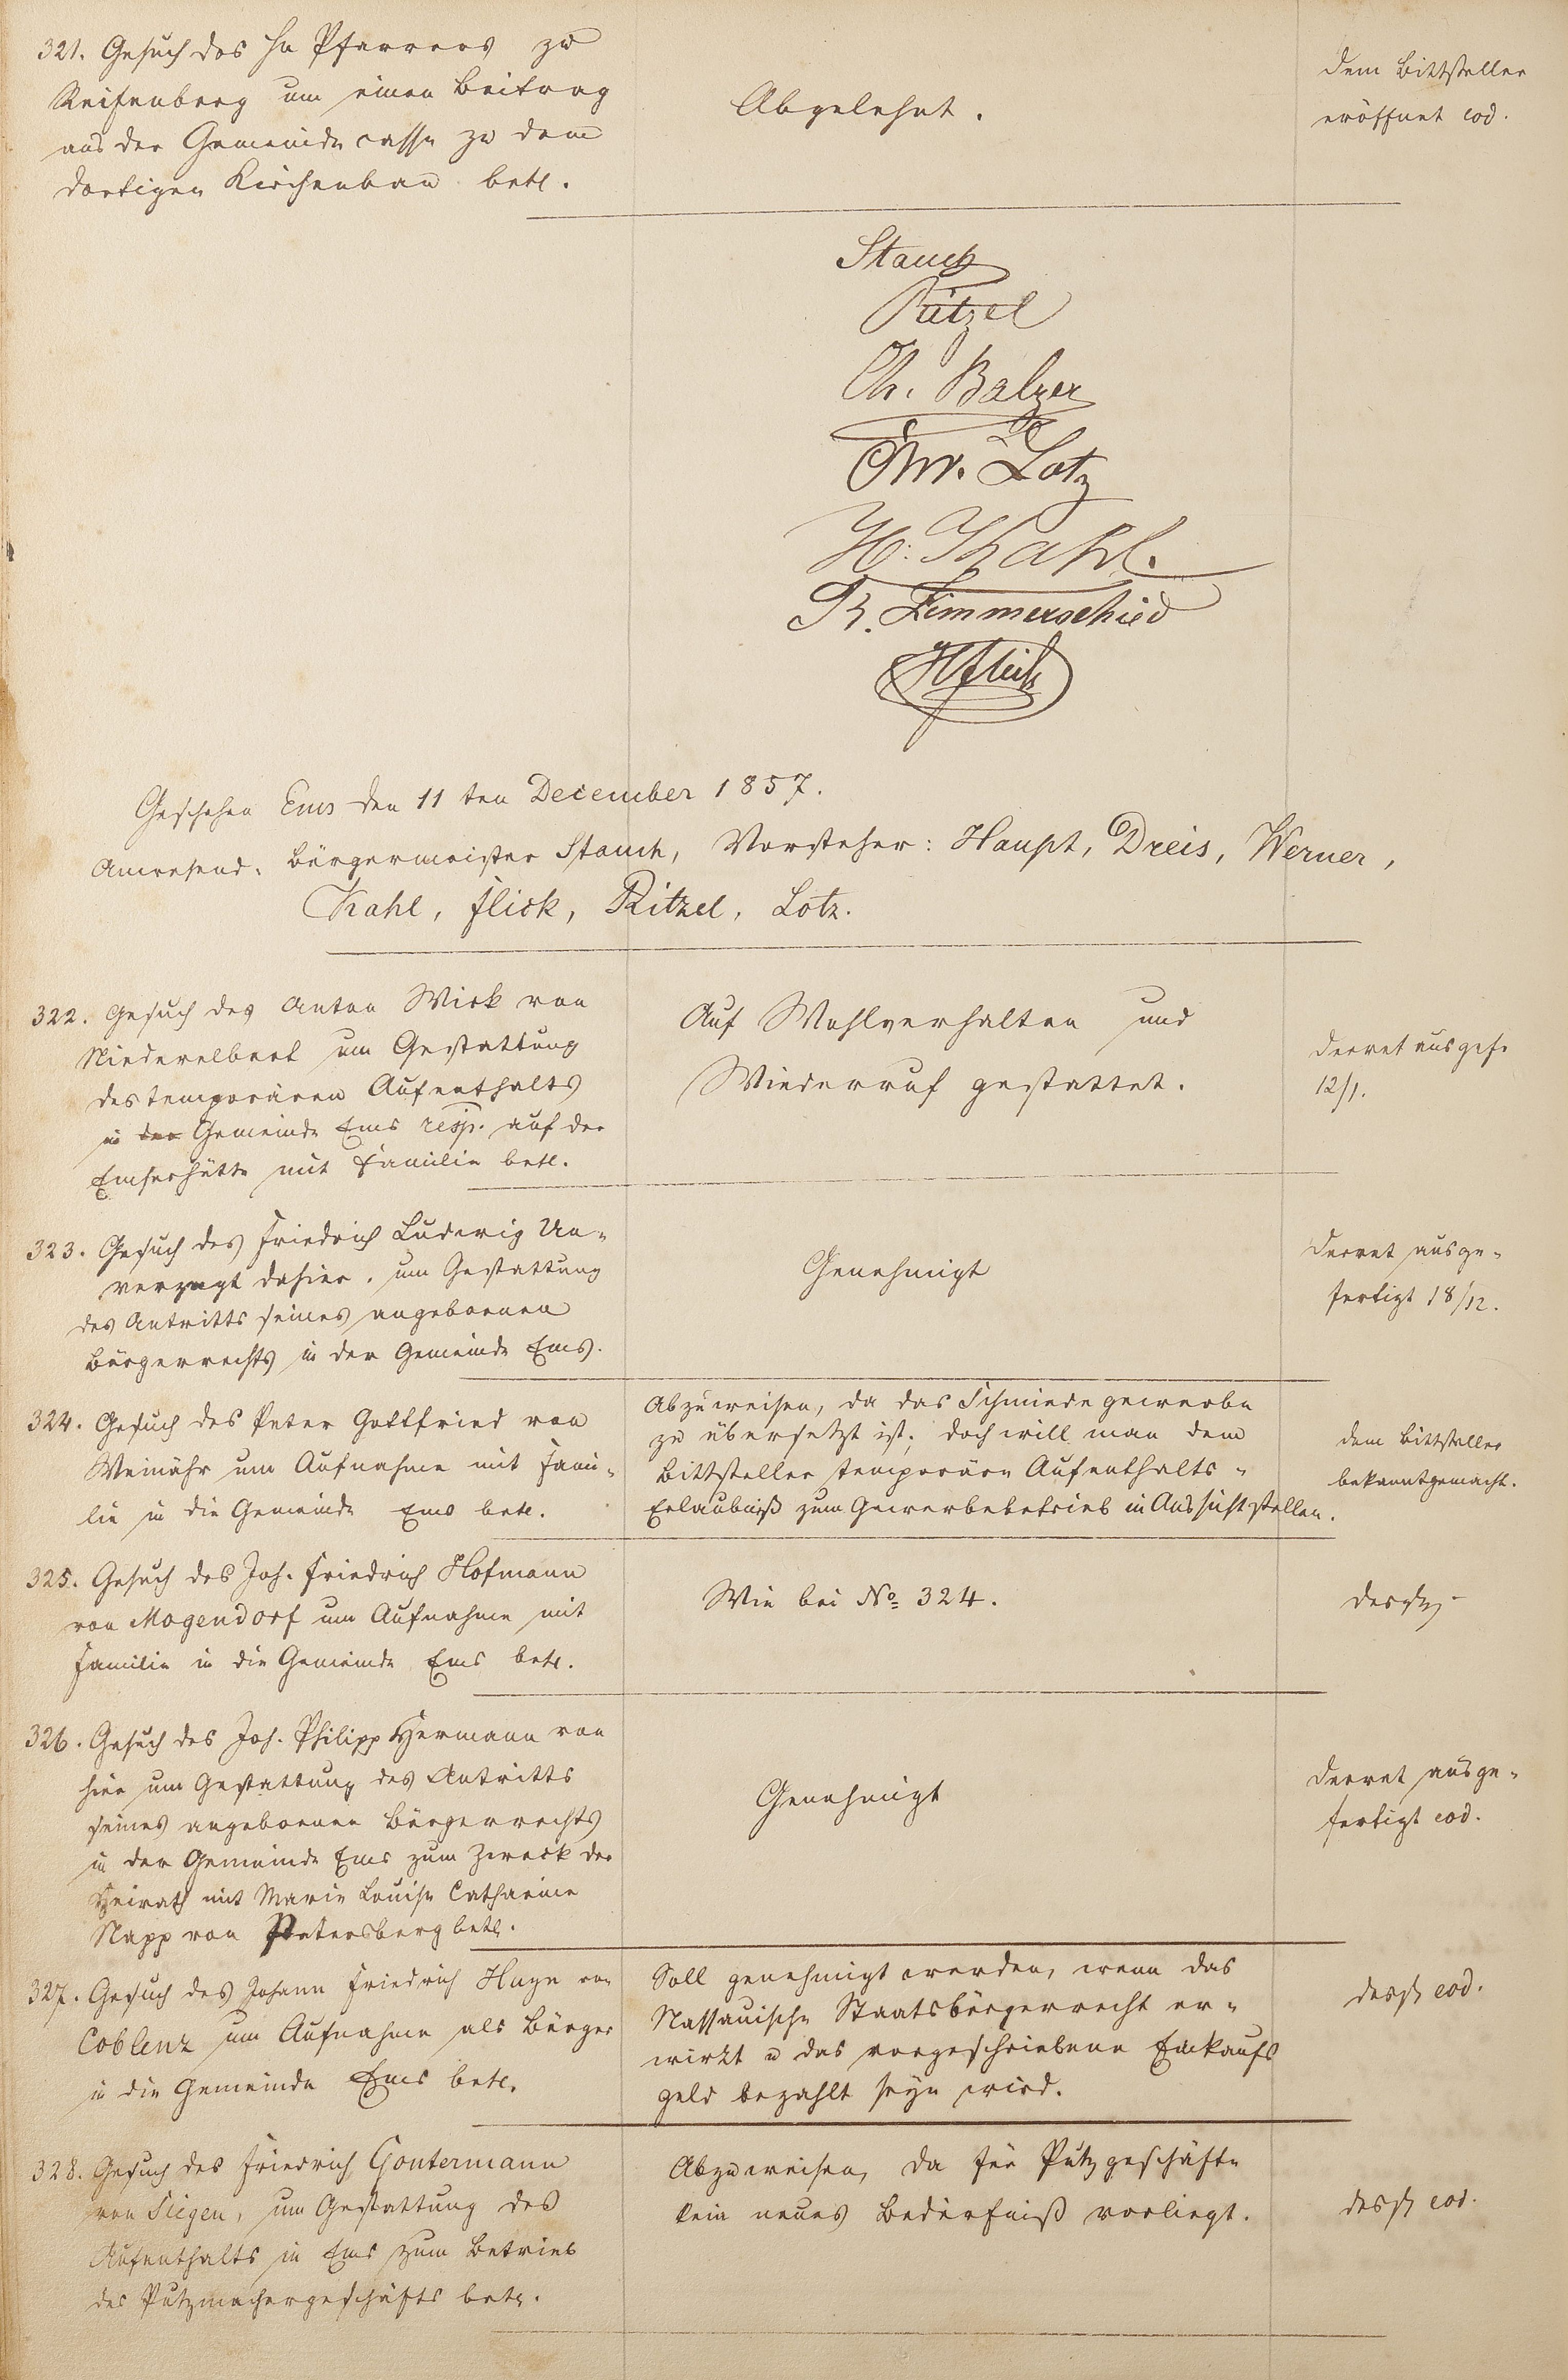 321. Gesuch des Hn Pfarrers zu
Reifenberg um einen Beitrag
aus der Gemeindecasse zu dem
dortigen Kirchenbau betr.
Abgelehnt.
Dem Bittsteller
eröffnet eod.
Stauch
Ritzel
Ch. Balzer
Chr. Lotz
H. Kahl.
K. Zimmerschied
HFlick
Geschehen Ems den 11ten December 1857.
Anwesend: Bürgermeister Stauch, Vorsteher: Haupt, Dreis, Werner,
Kahl, Flick, Ritzel, Lotz.
322. Gesuch des Anton Wick von
Niederelbert um Gestattung
des temporären Aufenthalts
in der Gemeinde Ems resp. auf der
Emserhütte mit Familie betr.
Auf Wohlverhalten und
Wiederruf gestattet.
Decret ausgef.
12/1.
323. Gesuch des Friedrich Ludwig Un-
verzagt dahier, um Gestattung
des Antritts seines angebornen
Bürgerrechts in der Gemeinde Ems.
Genehmigt
Decret ausge-
fertigt 18/12.
324. Gesuch des Peter Gottfried von
Weinähr um Aufnahme mit Fami-
lie in die Gemeinde Ems betr.
Abzuweisen, da das Schmiedegewerbe
zu übersetzt ist; doch will man dem
Bittsteller temporäre Aufenthalts-
Erlaubniß zum Gewerbebetrieb in Aussicht stellen.
dem Bittsteller
bekanntgemacht.
325. Gesuch des Joh. Friedrich Hofmann
von Mogendorf um Aufnahme mit
Familie in die Gemeinde Ems betr.
Wie bei No. 324.
desgl.
326. Gesuch des Joh. Philipp Hermann von
hier um Gestattung des Antritts
seines angebornen Bürgerrechts
in der Gemeinde Ems zum Zweck der
Heirath mit Marie Louise Catharine
Napp von Petersberg betr.
Genehmigt
Decret ausge-
fertigt eod.
327. Gesuch des Johann Friedrich Hage von
Coblenz um Aufnahme als Bürger
in die Gemeinde Ems betr.
Soll genehmigt werden, wenn das
Nassauische Staatsbürgerrecht er-
wirkt u das vorgeschriebene Einkaufs
geld bezahlt seyn wird.
desgl eod.
328. Gesuch des Friedrich Gontermann
von Siegen, um Gestattung des
Aufenthalts in Ems zum Betrieb
des Putzmachergeschäfts betr.
Abzuweisen, da für Putzgeschäfte
kein neues Bedürfniß vorliegt.
desgl eod.